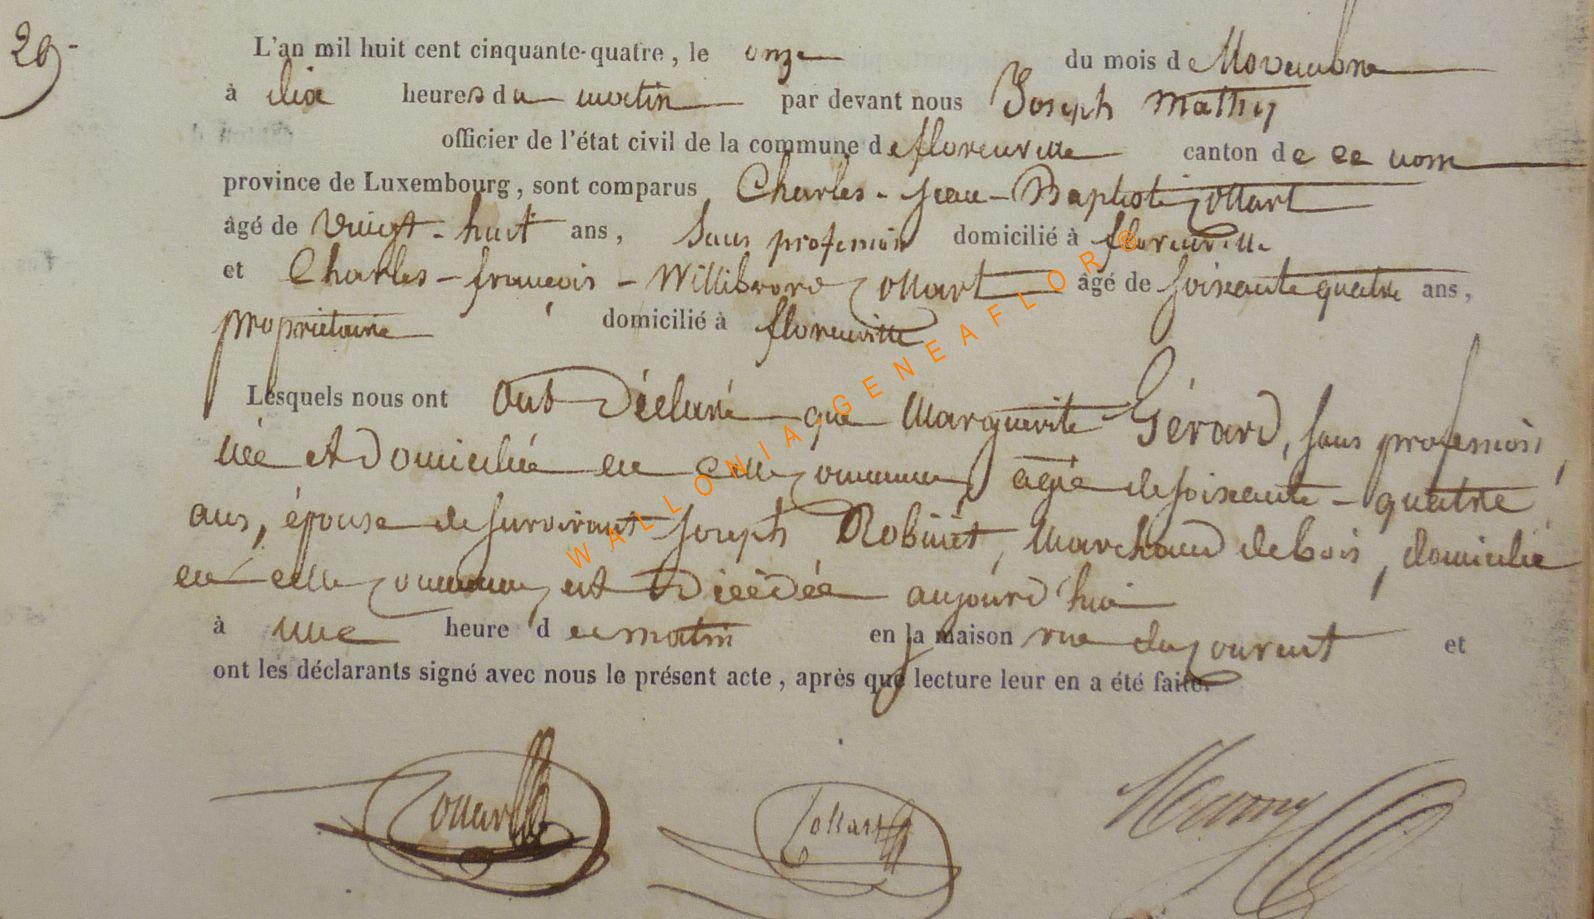 29.
L'an mil huit cent cinquante-quatre, le onze du mois de Novembre
à dix heures du matin par devant nous Joseph Mathey
officier de l'état civil de la commune de florenville canton de ce nom
province de Luxembourg, sont comparus Charles-Jean-Baptiste Collart
âgé de vingt-huit ans, Sans profession domicilié à florenville
et Charles-françois-Willibrord Collart âgé de soixante quatre ans,
propriétaire domicilié à florenville
Lesquels nous ont ont Déclaré que Marguerite Gérard, sans profession,
née et domiciliée en cette commune, agée de soixante-quatre
ans, épouse de survivant Joseph Robinet, Marchand de bois, domicilié
en cette commune, est Décédée aujourd'hui
à une heure du matin en la maison rue du Couvent et
ont les déclarants signé avec nous le présent acte, après que lecture leur en a été faite.
Collart Collart
WALLONIA-GENEAFLOR®